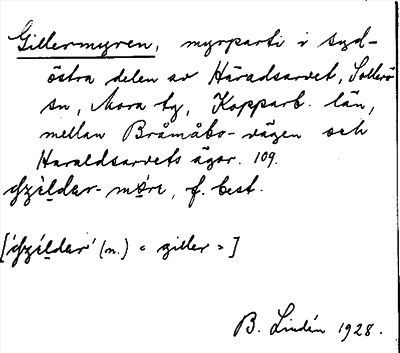 Gillermyren, myrparti i syd-
östra delen av Häradsarvet, Sollerö
sn, Mora tg, Kopparb. län,
mellan Bråmåbo-vägen och
Haraldsarvets ägor. 109.
f. best.
(m.) « giller »]
B. Lindén 1928.